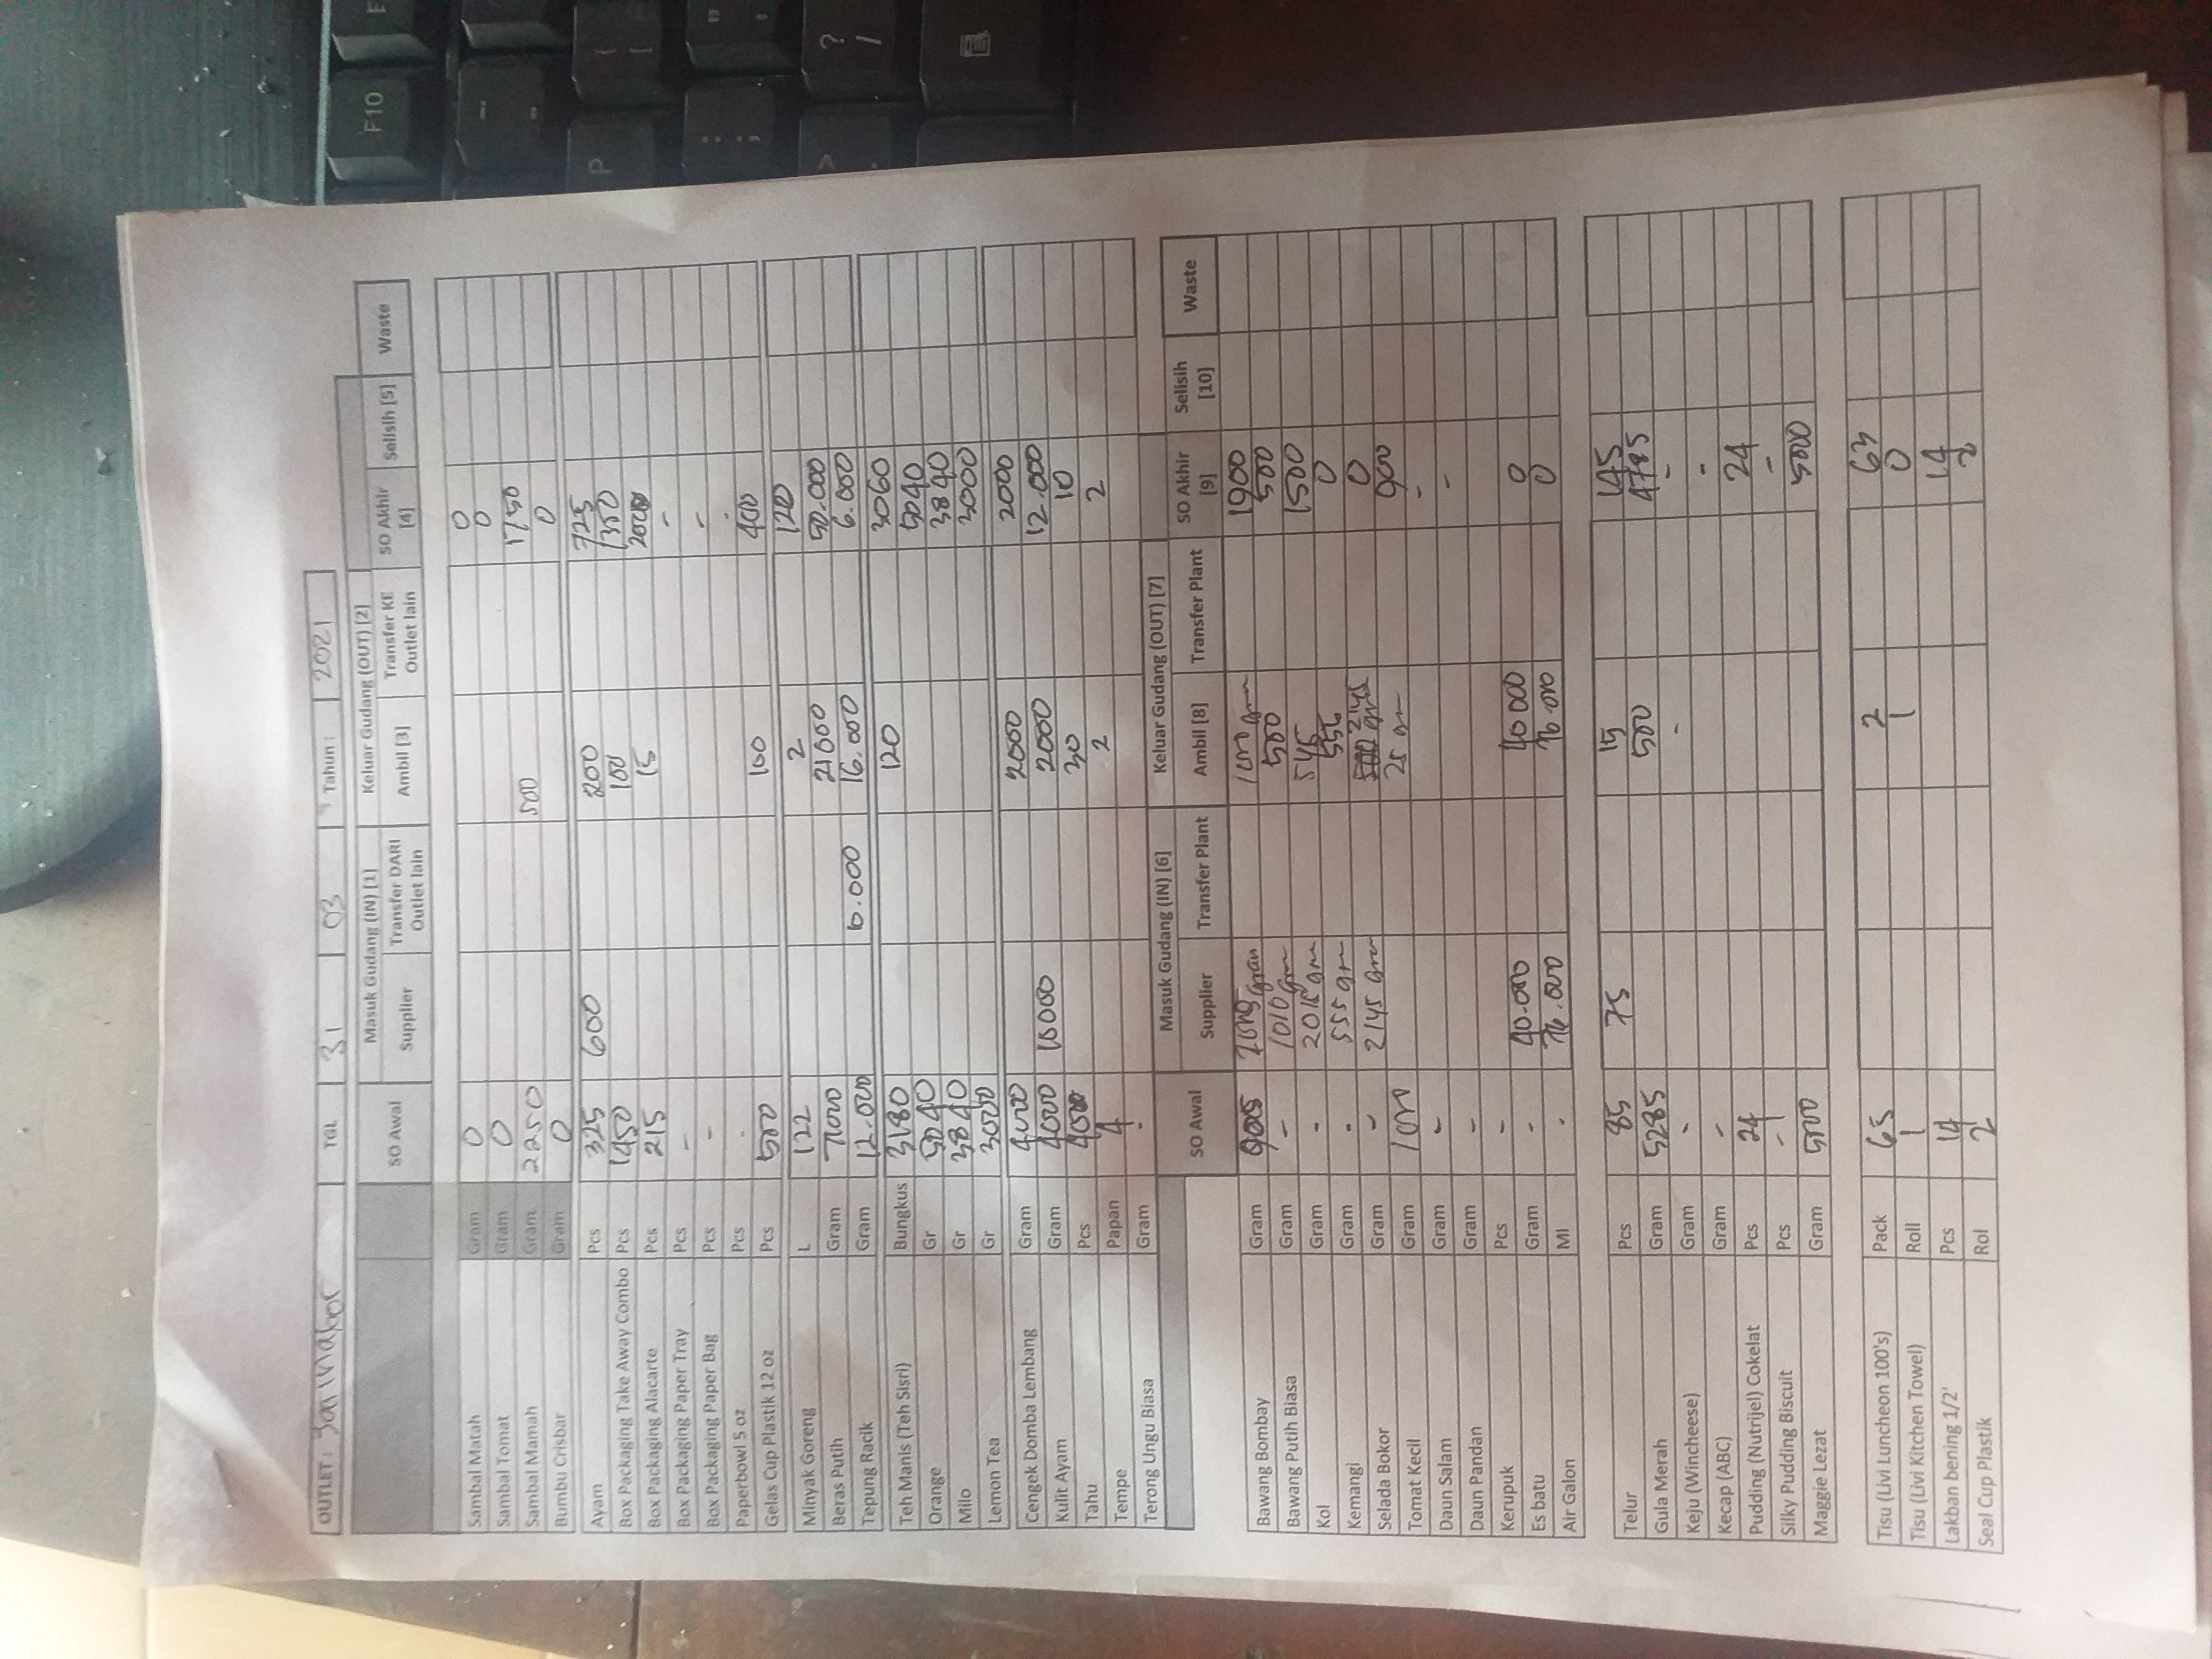 OUTLET : TGL 31 03 Tahun : 2021
SO Awal Masuk Gudang (IN) [1] Keluar Gudang (OUT) [2] SO Akhir [4] Selisih [5] Waste
Supplier Transfer DARI Outlet lain Ambil [3] Transfer KE Outlet lain
Sambal Matah Gram 0 0
Sambal Tomat Gram 0 0
Sambal Mamah Gram 2250 500 1750
Bumbu Crisbar Gram 0 0
Ayam Pcs 325 600 200 725
Box Packaging Take Away Combo Pcs 1450 100 1350
Box Packaging Alacarte Pcs 215 15
Box Packaging Paper Tray Pcs - -
Box Packaging Paper Bag Pcs - -
Paperbowl 5 oz Pcs - -
Gelas Cup Plastik 12 oz Pcs 500 100 400
Minyak Goreng L 122 2 120
Beras Putih Gram 71000 21000 50.000
Tepung Racik Gram 12.000 10.000 16.000 6.000
Teh Manis (Teh Sisri) Bungkus 3180 120 3060
Orange Gr 5040 5040
Milo Gr 3840 3840
Lemon Tea Gr 3000 3000
Cengek Domba Lembang Gram 4000 2000 2000
Kulit Ayam Gram 4000 10000 2000 12.000
Tahu Pcs 30 10
Tempe Papan 4 2 2
Terong Ungu Biasa Gram -
SO Awal Masuk Gudang (IN) [6] Keluar Gudang (OUT) [7] SO Akhir [9] Selisih [10] Waste
Supplier Transfer Plant Ambil [8] Transfer Plant
Bawang Bombay Gram gram 1000 gm 1900
Bawang Putih Biasa Gram - 1010 gm 500 500
Kol Gram - 2015 gm 1500
Kemangi Gram - 555 gm 0
Selada Bokor Gram - 2145 gm 2145 gm 0
Tomat Kecil Gram 1000 25 gm 900
Daun Salam Gram - -
Daun Pandan Gram - -
Kerupuk Pcs -
Es batu Gram - 40.000 40 000 0
Air Galon Ml - 76.000 76.000 0
Telur Pcs 85 75 15 145
Gula Merah Gram 5285 500 4785
Keju (Wincheese) Gram - - -
Kecap (ABC) Gram - -
Pudding (Nutrijel) Cokelat Pcs 24 24
Silky Pudding Biscuit Pcs - -
Maggie Lezat Gram 5000 5000
Tisu (Livi Luncheon 100's) Pack 65 2 63
Tisu (Livi Kitchen Towel) Roll 1 1 0
Lakban bening 1/2' Pcs 14 14
Seal Cup Plastik Rol 2 2